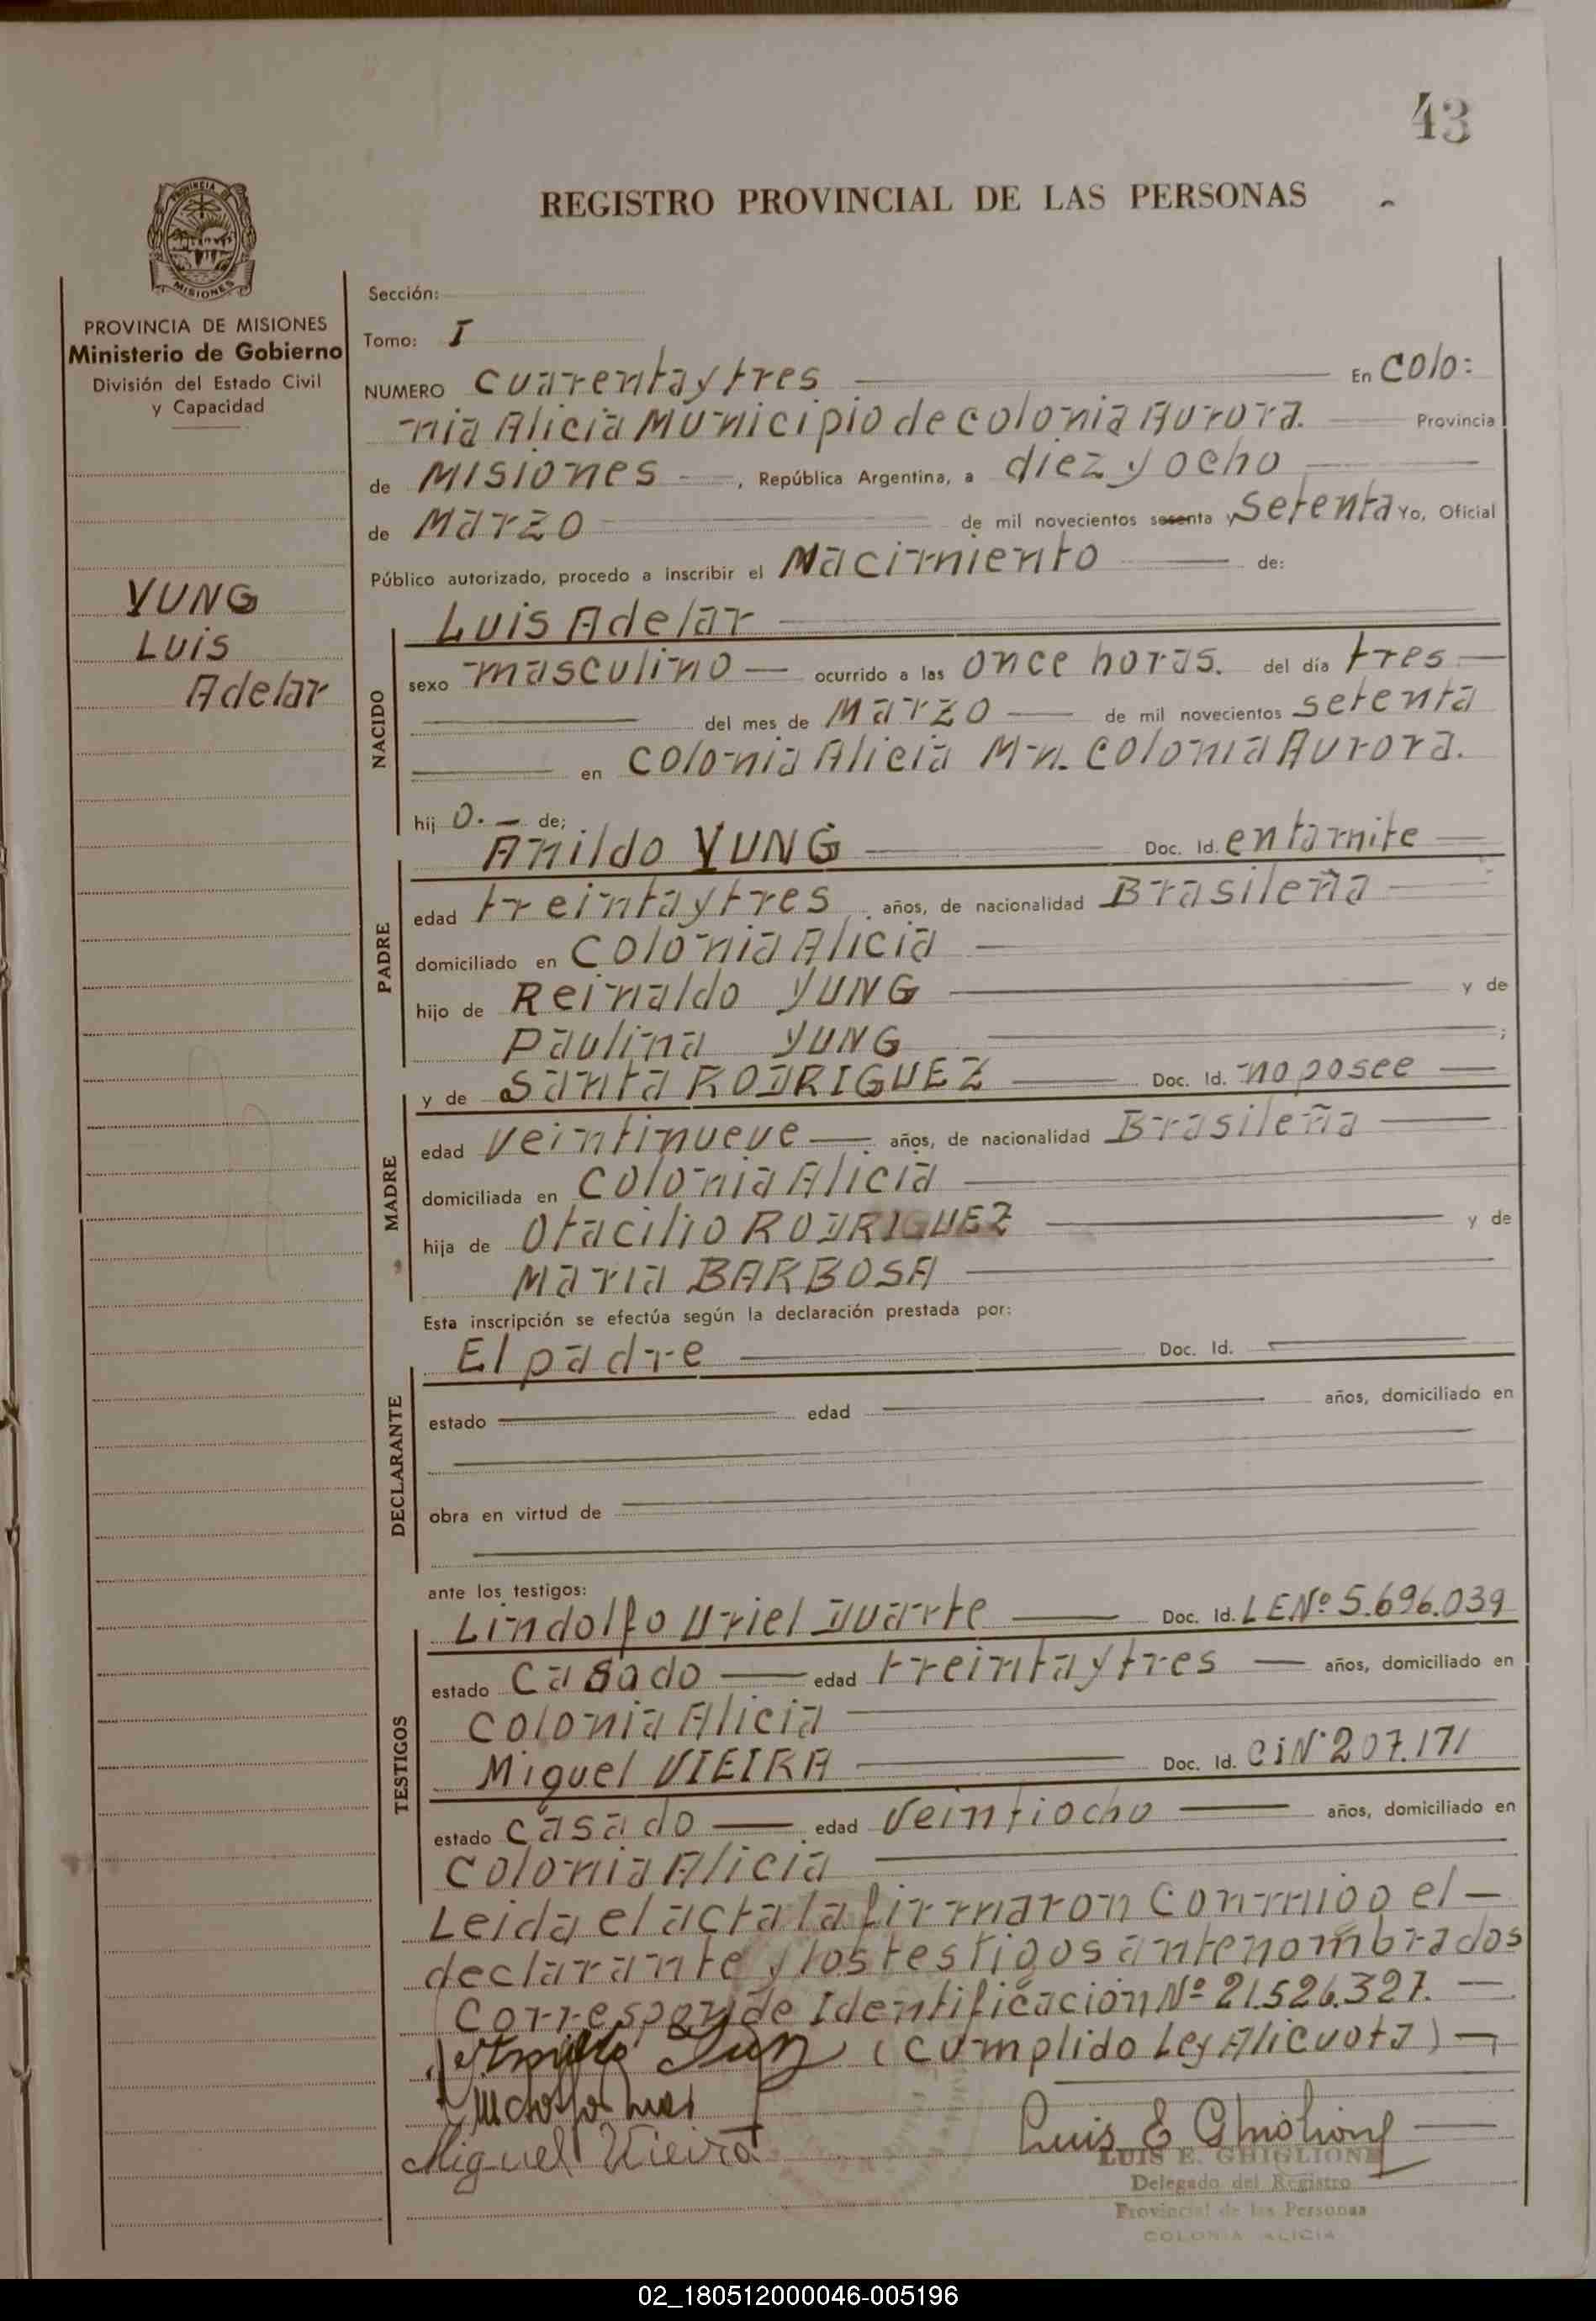 43
REGISTRO PROVINCIAL DE LAS PERSONAS
PROVINCIA DE MISIONES
MISIONES
PROVINCIA DE MISIONES
Ministerio de Gobierno
División del Estado Civil
y Capacidad
YUNG
Luis
Adelar
Sección:
Tomo: I
NUMERO cuarentaytres En Colo:
nia Alicia Municipio de colonia Aurora. Provincia
de Misiones, República Argentina, a diez y ocho
de Marzo de mil novecientos sesenta y setenta Yo, Oficial
Público autorizado, procedo a inscribir el Nacimiento de:
NACIDO
Luis Adelar
sexo masculino ocurrido a las once horas. del día tres
del mes de Marzo de mil novecientos setenta
en colonia Alicia Mn. Colonia Aurora.
hij o. de;
PADRE
Anildo YUNG Doc. Id. entramite
edad treintaytres años, de nacionalidad Brasileña
domiciliado en Colonia Alicia
hijo de Reinaldo YUNG y de
Paulina YUNG ;
MADRE
y de Santa RODRIGUEZ Doc. Id. no posee
edad veintinueve años, de nacionalidad Brasileña
domiciliada en Colonia Alicia
hija de Otacilio RODRIGUEZ y de
Maria BARBOSA
Esta inscripción se efectúa según la declaración prestada por:
DECLARANTE
El padre Doc. Id.
estado edad años, domiciliado en
obra en virtud de
ante los testigos:
TESTIGOS
Lindolfo Uriel Duarte Doc. Id. LE Nº 5.696.039
estado Casado edad treintaytres años, domiciliado en
Colonia Alicia
Miguel VIEIRA Doc. Id. CiNº 207.171
estado casado edad veintiocho años, domiciliado en
Colonia Alicia
Leida el acta la firmaron conmigo el
declarante y los testigos antenombrados
Corresponde Identificación Nº 21.526.327.
(cumplido Ley Alicuota)
Miguel Vieira
Luis E Ghiglione
LUIS E. GHIGLIONE
Delegado del Registro
Provincial de las Personas
COLONIA ALICIA
02_180512000046-005196